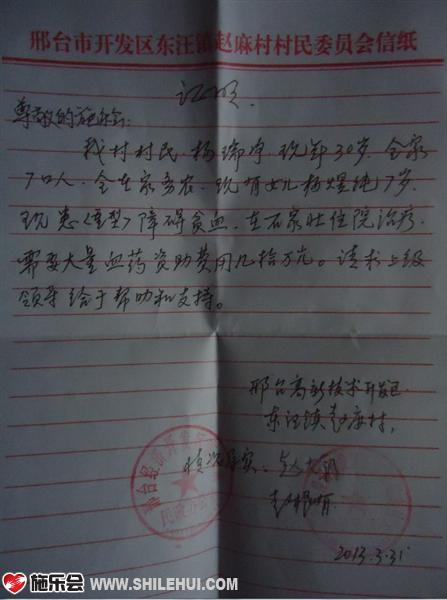 邢台市开发区东汪镇赵麻村村民委员会信纸
证明.
尊敬的施乐会:
我村村民.杨瑞宇.现年30岁.全家
7口人.全在家务农.现有女儿杨煜纯7岁.
现患(重型)障碍贫血.在石家庄住院治疗.
需要大量血药资助费用几拾万元。请求上级
领导给于帮助和支持。
邢台高新技术开发区.
东汪镇赵麻村,
情况属实.
2013.3.31
施乐会
WWW.SHILEHUI.COM